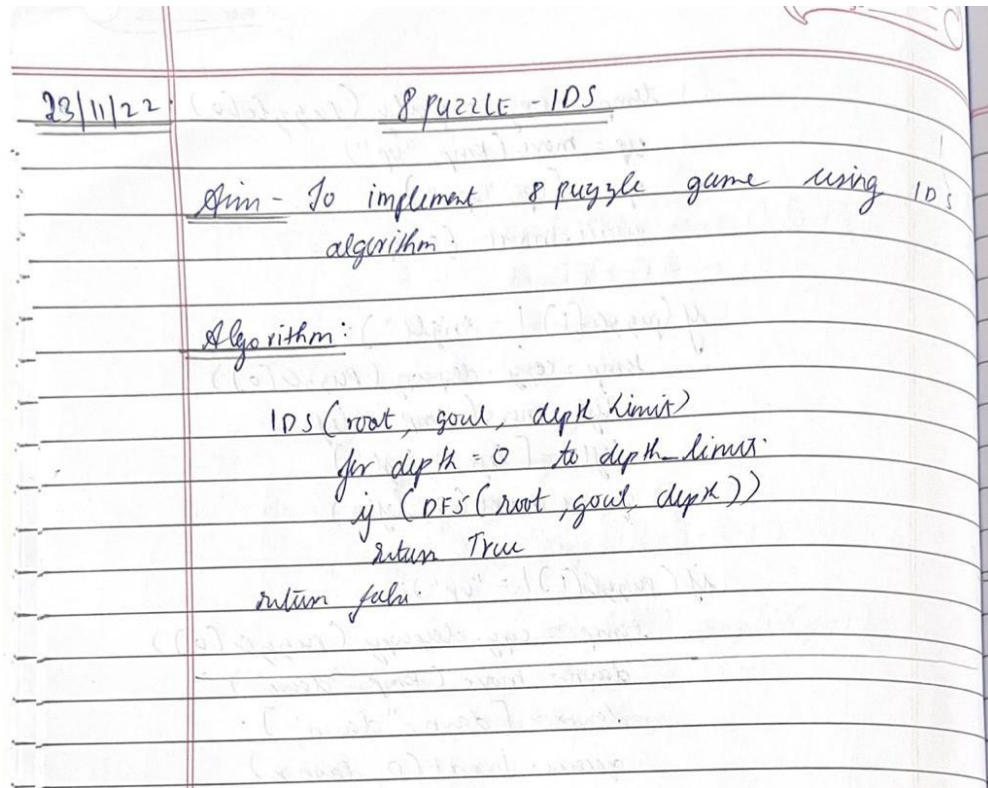 23/11/22.
8 PUZZLE - IDS
Aim - To implement 8 puzzle game using IDS
algorithm.
Algorithm:
IDS (root, goal, depth limit)
for depth = 0 to depth_limit.
if (DFS (root, goal, depth))
return True
return false.